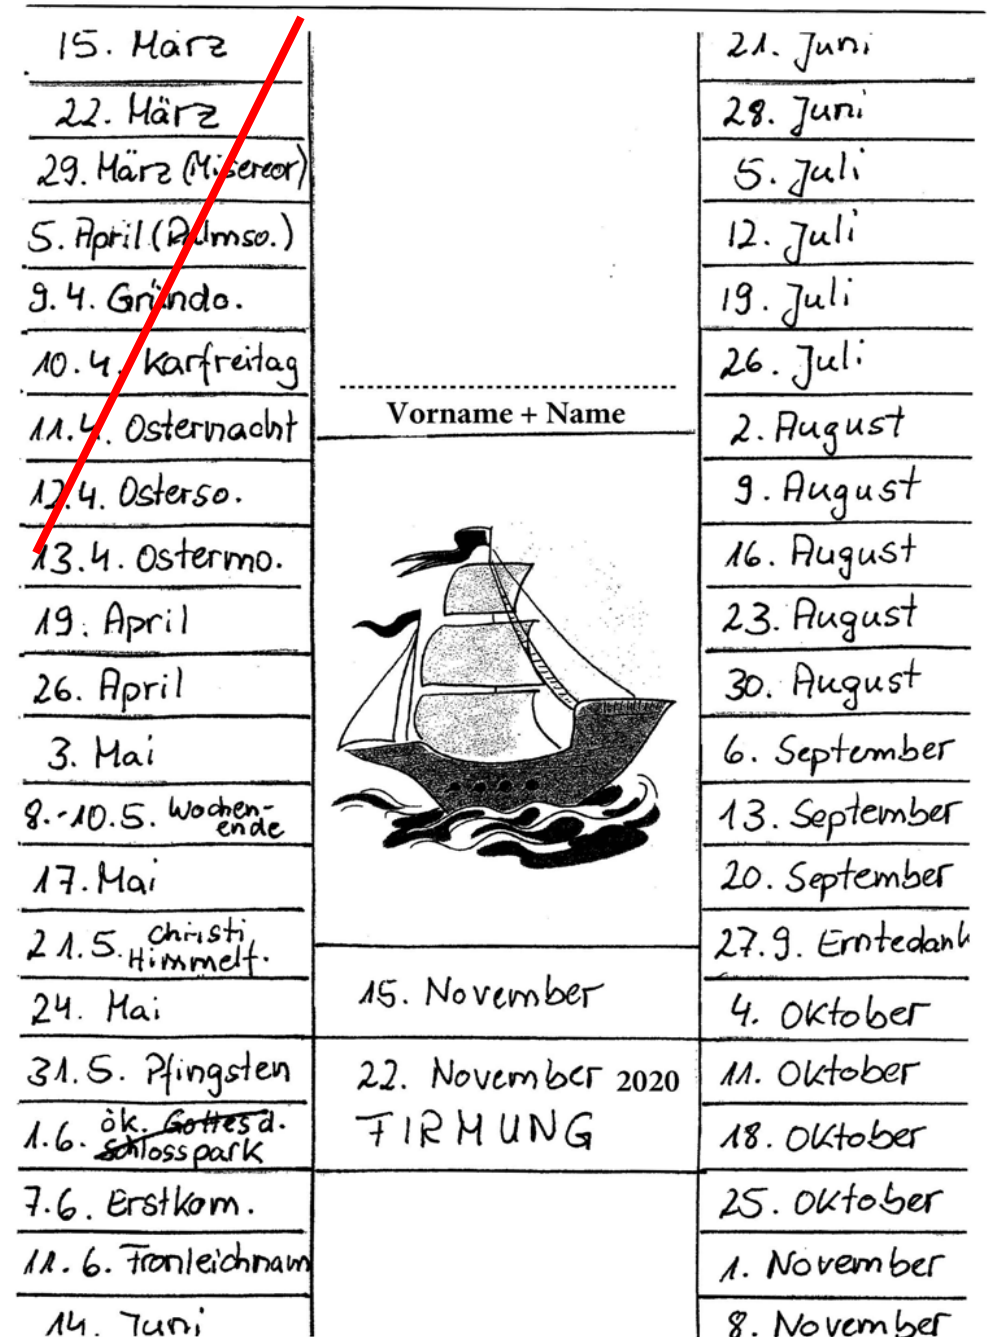 15. März
22. März
29. März (Misereor)
5. April (Palmso.)
9. 4. Gründo.
10. 4. Karfreitag
11. 4. Osternacht
12. 4. Osterso.
13. 4. Ostermo.
19. April
26. April
3. Mai
8.-10.5. Wochen-
ende
17. Mai
21.5. Christi
Himmelf.
24. Mai
31.5. Pfingsten
1.6. ök. Gottesd.
Schlosspark
7.6. Erstkom.
11. 6. Fronleichnam
14. Juni
Vorname + Name
15. November
22. November 2020
FIRMUNG
21. Juni
28. Juni
5. Juli
12. Juli
19. Juli
26. Juli
2. August
9. August
16. August
23. August
30. August
6. September
13. September
20. September
27.9. Erntedank
4. Oktober
11. Oktober
18. Oktober
25. Oktober
1. November
8. November